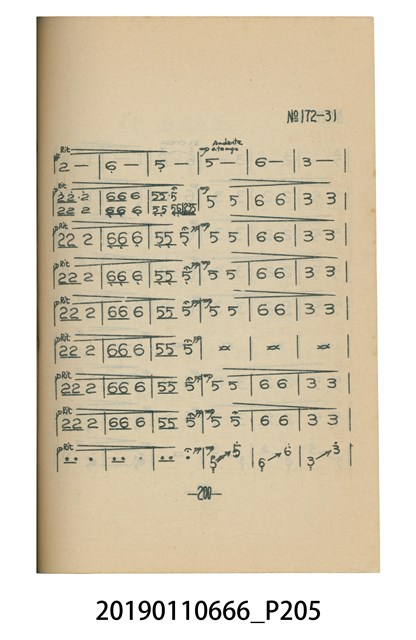 №172-31
Rit Andante
a tempo
2 — | 6 — | 5 — | 5 — | 6 — | 3 — |
Rit
22 2 | 66 6 | 55 5 | 5 5 | 6 6 | 3 3 |
22 2 | 66 6 | 55
Rit
22 2 | 66 6 | 55 5 | 5 5 | 6 6 | 3 3 |
Rit
22 2 | 66 6 | 55 5 | 5 5 | 6 6 | 3 3 |
Rit
22 2 | 66 6 | 55 5 | 5 5 | 6 6 | 3 3 |
Rit
22 2 | 66 6 | 55 5 |
Rit
22 2 | 66 6 | 55 5 | 5 5 | 6 6 | 3 3 |
Rit
22 2 | 66 6 | 55 5 | 5 5 | 6 6 | 3 3 |
Rit
5 5 | 6 6 | 3 3 |
—200—
20190110666_P205